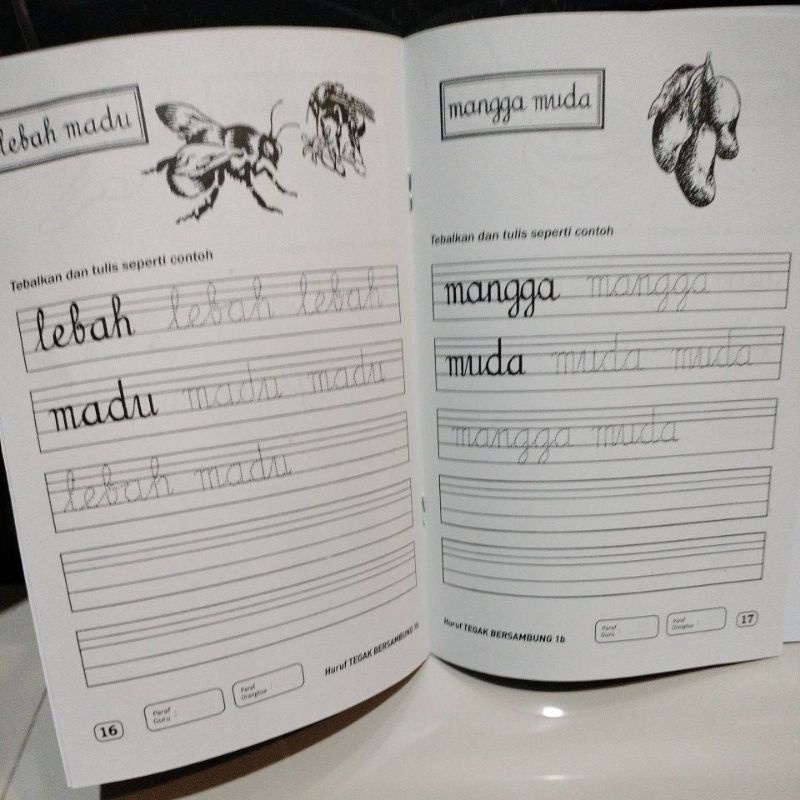 lebah madu
Tebalkan dan tulis seperti contoh
lebah lebah lebah
madu madu madu
lebah madu
16
Paraf Guru :
Paraf Orangtua :
Huruf TEGAK BERSAMBUNG 1b
mangga muda
Tebalkan dan tulis seperti contoh
mangga mangga
muda muda muda
mangga muda
Huruf TEGAK BERSAMBUNG 1b
Paraf Guru :
Paraf Orangtua :
17